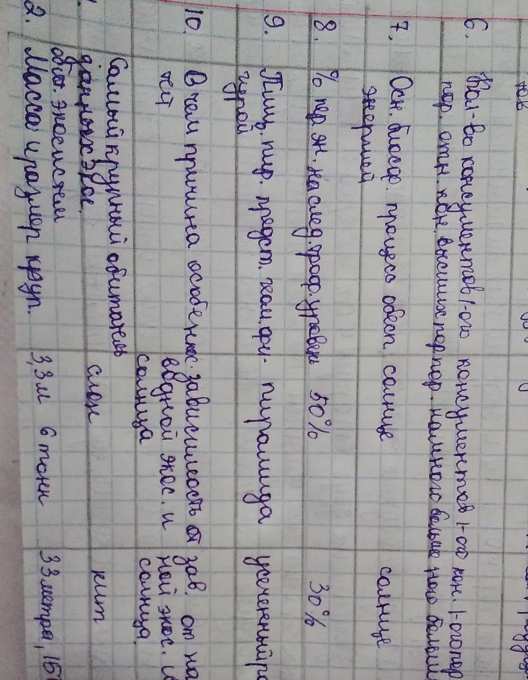 6. Кол-во консументов 1-ого консументов 1-ого кон. 1-ого пор
пор. отн. кон. высших пор. пор. намного больше ного больш
7. Осн. биосф. процесс обесп. солнце солнце
энергией
8. % пер. эн. на след. троф. уровень 50% 30%
9. Пищ. пир. предст. геом. фи- пирамида усеченный
гурой
10. В чем причина особеннос- зависимость от зав. от на
тей водной экос. и ной экос. и
солнца солнца.
Самый крупный обитатель слон кит
данных экос.
обит. экосистем
2. Масса и размер круп. 3,3 м 6 тонн 33 метра, 15